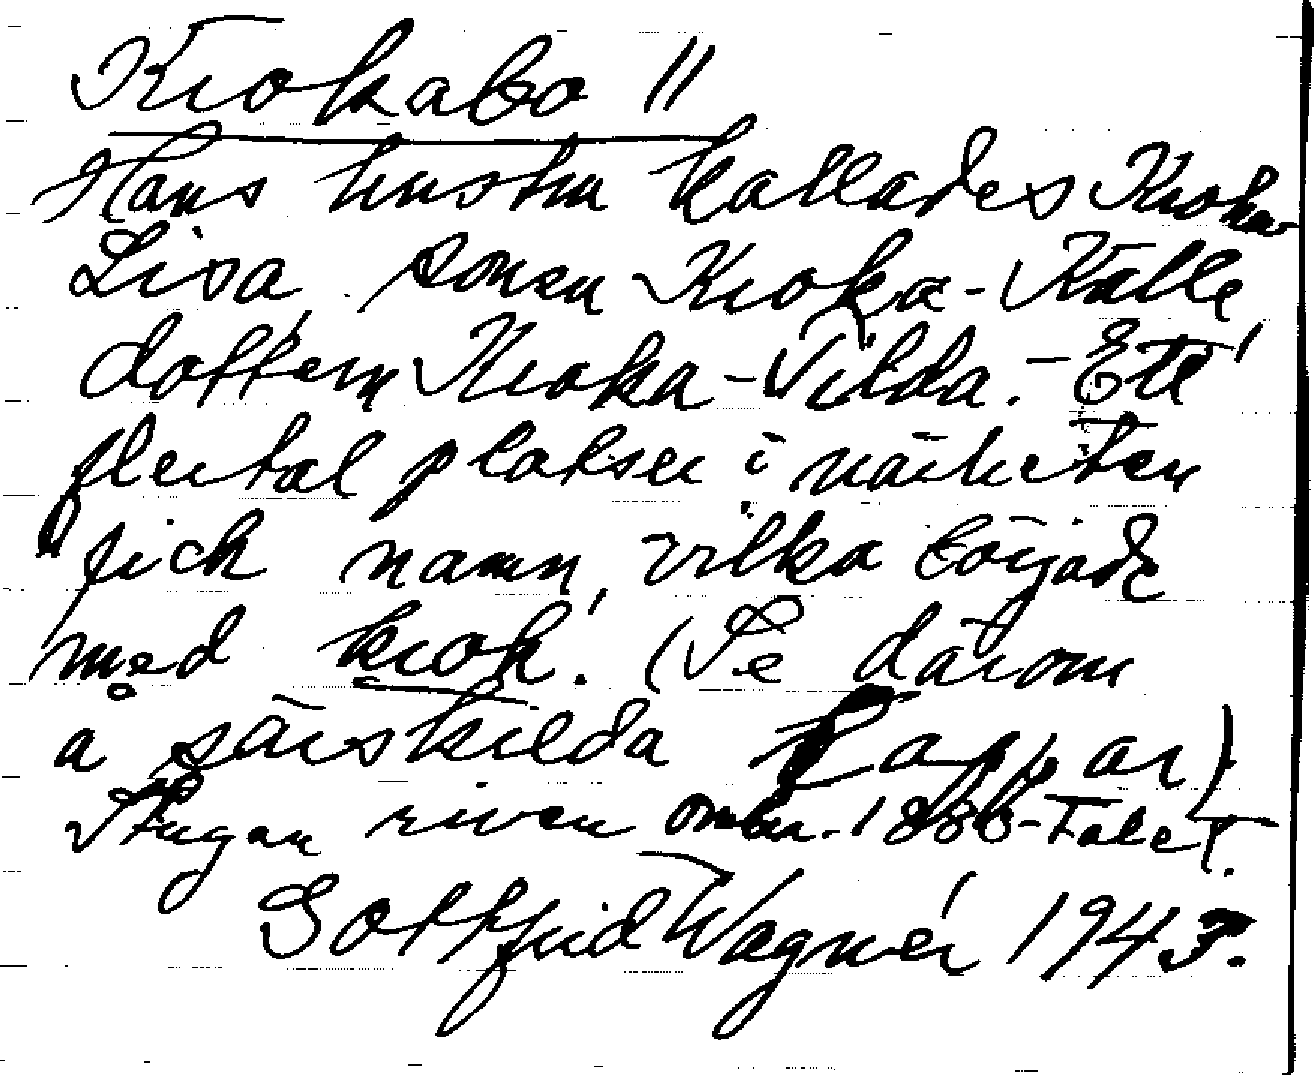 Krokabo II
Hans hustru kallades Kroka
Lisa, sonen Kroka-Kalle,
dottern Kroka-Tilda. - Ett
flertal platser i närheten
fick namn, vilka började
med krok. (Se därom
å särskilda lappar)
Stugan riven omkr. 1880-talet.
Gottfrid Wagnér 1943.